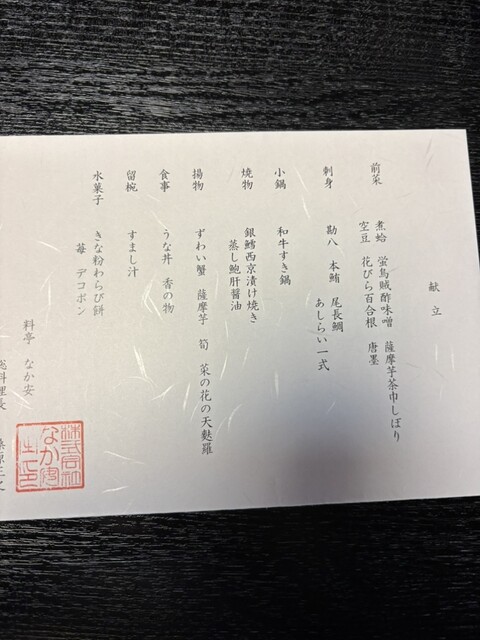 献立
前菜
煮蛤 蛍烏賊酢味噌 薩摩芋茶巾しぼり
空豆 花びら百合根 唐墨
刺身
勘八 本鮪 尾長鯛
あしらい一式
小鍋
和牛すき鍋
焼物
銀鱈西京漬け焼き
蒸し鮑肝醤油
揚物
ずわい蟹 薩摩芋 筍 菜の花の天麩羅
食事
うな丼 香の物
留椀
すまし汁
水菓子
きな粉わらび餅
苺 デコポン
料亭 なか安
総料理長
株式会社
なか安
之印